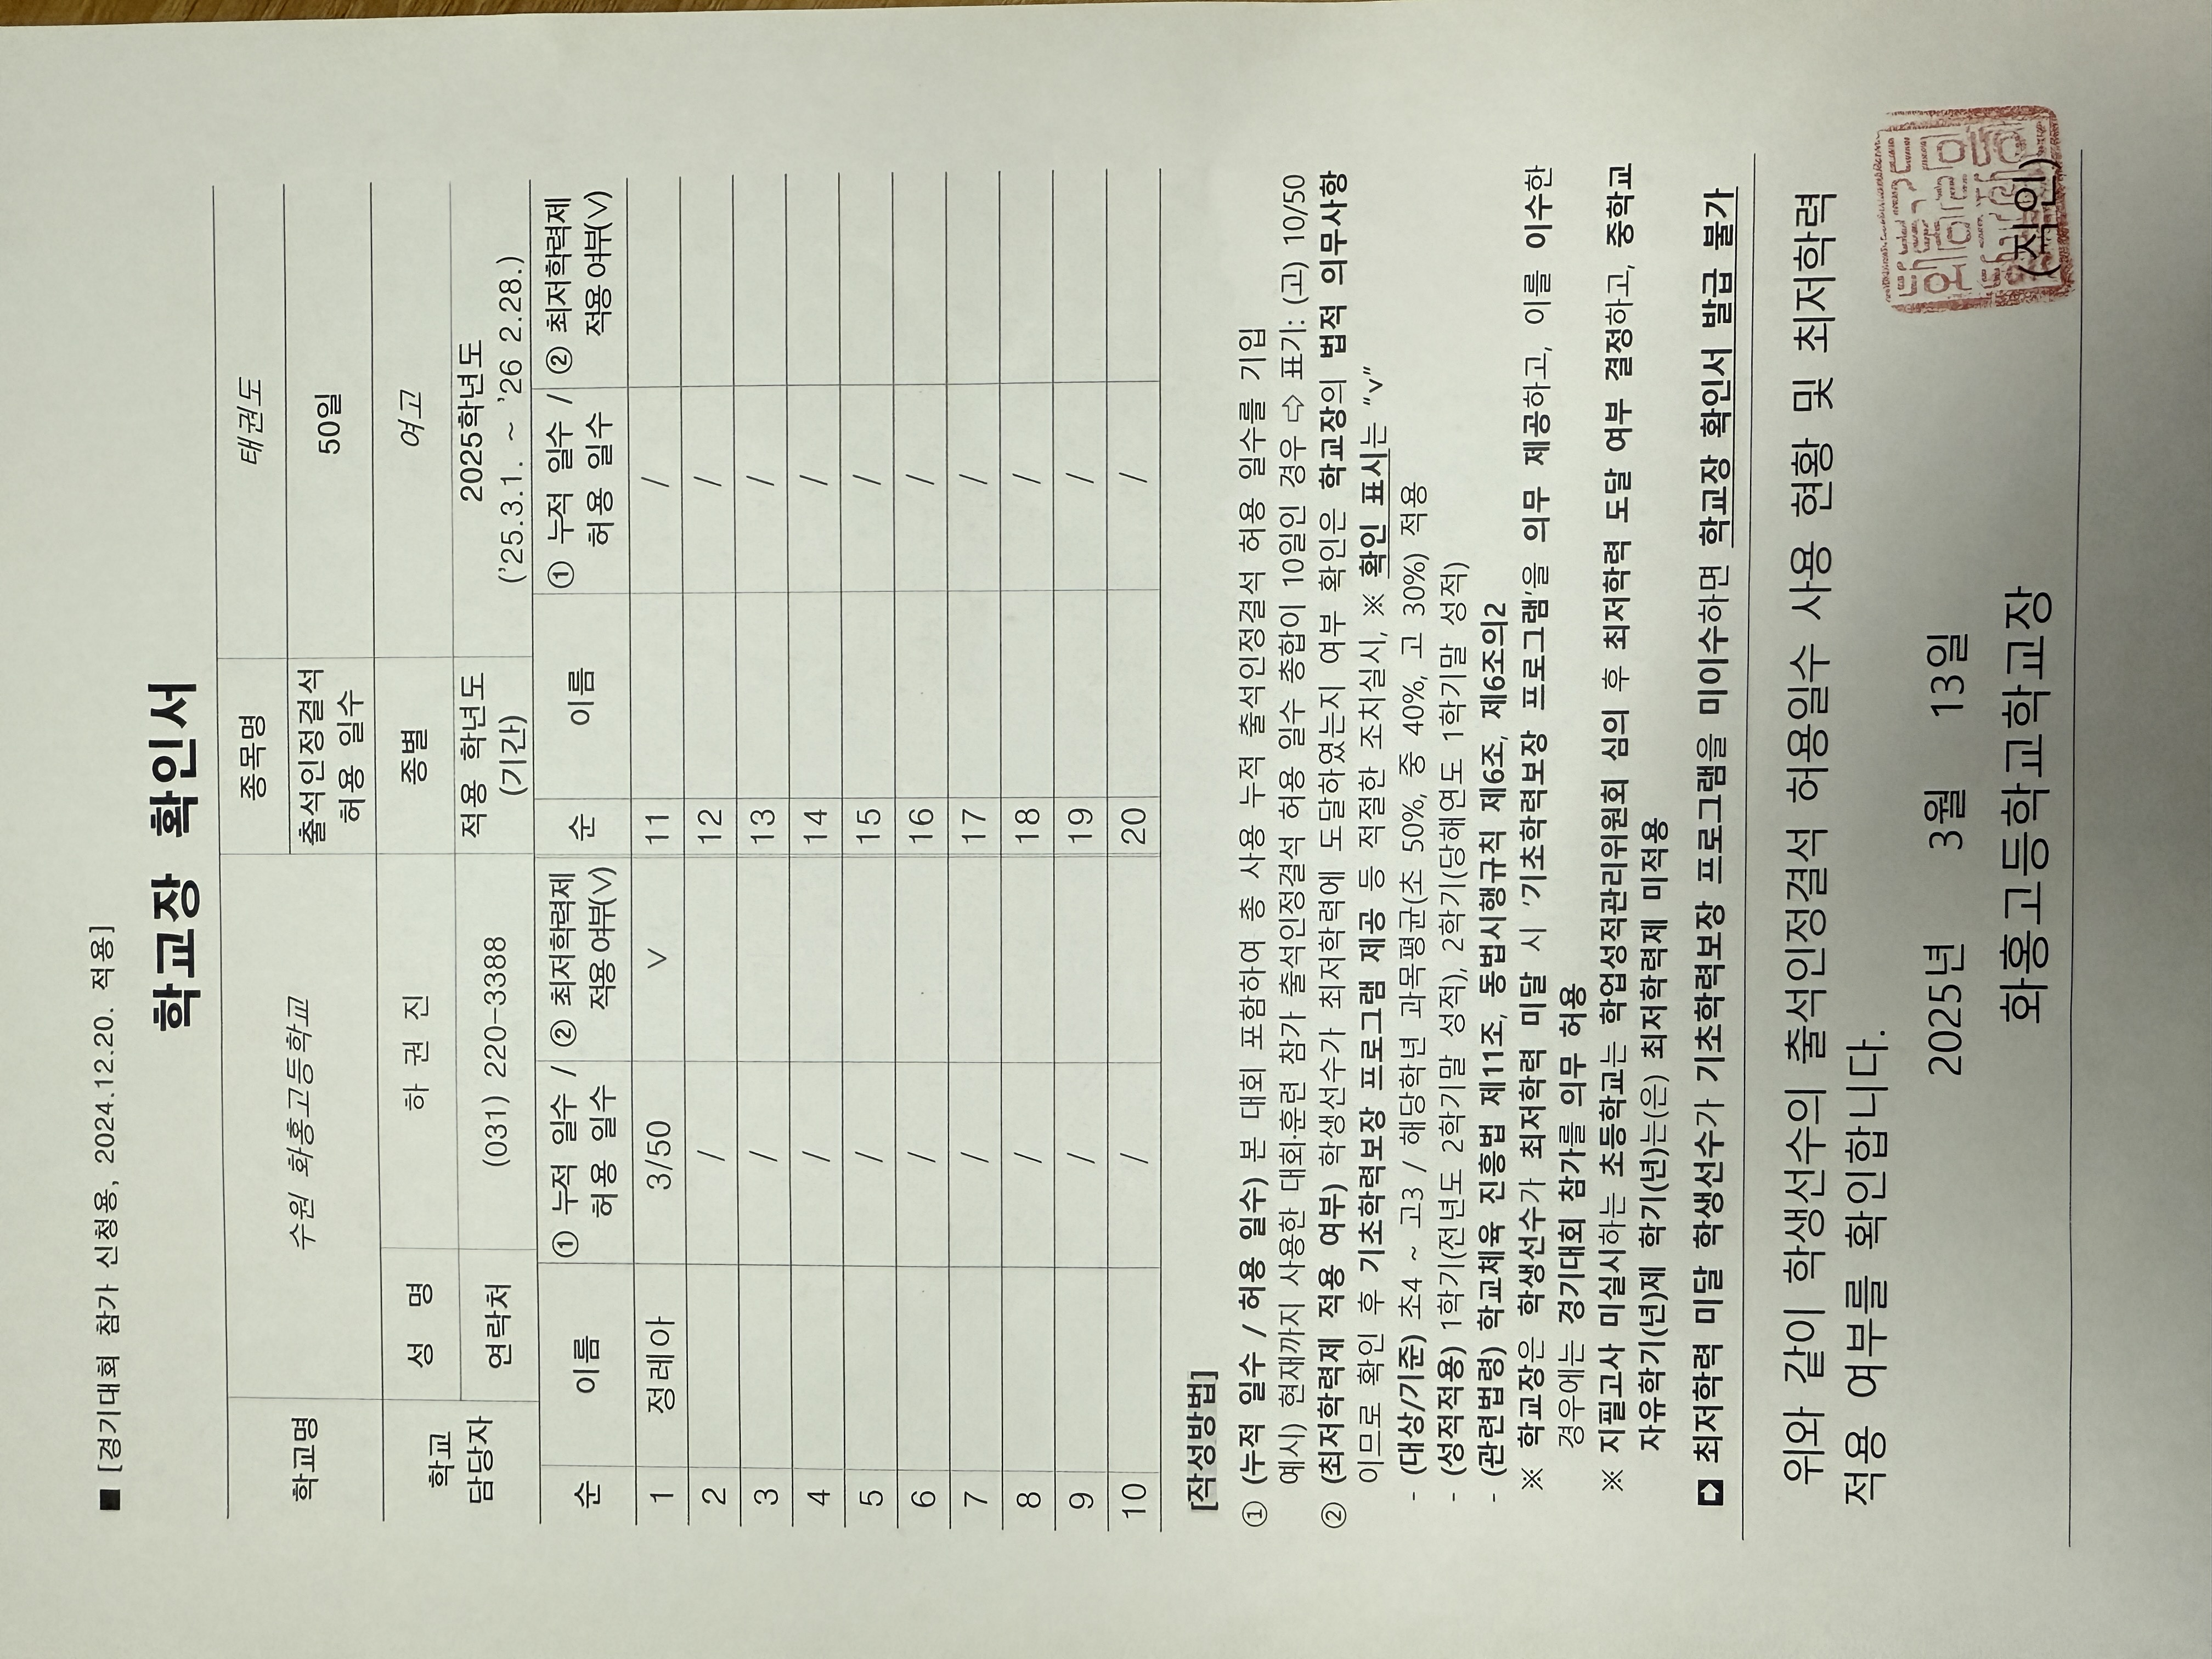 ■ [경기대회 참가 신청용, 2024.12.20. 적용]
학교장 확인서
학교명 수원 화홍고등학교 종목명 태권도
출석인정결석 허용 일수 50일
학교 담당자 성 명 하 권 진 종별 여고
연락처 (031) 220-3388 적용 학년도 (기간) 2025학년도 ('25.3.1. ~ '26 2.28.)
순 이름 ① 누적 일수 / 허용 일수 / ② 최저학력제 적용여부(∨) 순 이름 ① 누적 일수 / 허용 일수 / ② 최저학력제 적용여부(∨)
1 정레아 3/50 ∨ 11 /
2 / 12 /
3 / 13 /
4 / 14 /
5 / 15 /
6 / 16 /
7 / 17 /
8 / 18 /
9 / 19 /
10 / 20 /
[작성방법]
① (누적 일수 / 허용 일수) 본 대회 포함하여 총 사용 누적 출석인정결석 허용 일수를 기입
예시) 현재까지 사용한 대회·훈련 참가 출석인정결석 허용 일수 총합이 10일인 경우 ⇨ 표기: (고) 10/50
② (최저학력제 적용 여부) 학생선수가 최저학력에 도달하였는지 여부 확인은 학교장의 법적 의무사항
이므로 확인 후 기초학력보장 프로그램 제공 등 적절한 조치실시, ※ 확인 표시는 "v"
- (대상/기준) 초4 ~ 고3 / 해당학년 과목평균(초 50%, 중 40%, 고 30%) 적용
- (성적적용) 1학기(전년도 2학기말 성적), 2학기(당해연도 1학기말 성적)
- (관련법령) 학교체육 진흥법 제11조, 동법시행규칙 제6조, 제6조의2
※ 학교장은 학생선수가 최저학력 미달 시 '기초학력보장 프로그램'을 의무 제공하고, 이를 이수한
경우에는 경기대회 참가를 의무 허용
※ 지필고사 미실시하는 초등학교는 학업성적관리위원회 심의 후 최저학력 도달 여부 결정하고, 중학교
자유학기(년)제 학기(년)는(은) 최저학력제 미적용
➲ 최저학력 미달 학생선수가 기초학력보장 프로그램을 미이수하면 학교장 확인서 발급 불가
위와 같이 학생선수의 출석인정결석 허용일수 사용 현황 및 최저학력
적용 여부를 확인합니다.
2025년 3월 13일
화홍고등학교학교장 (직인)